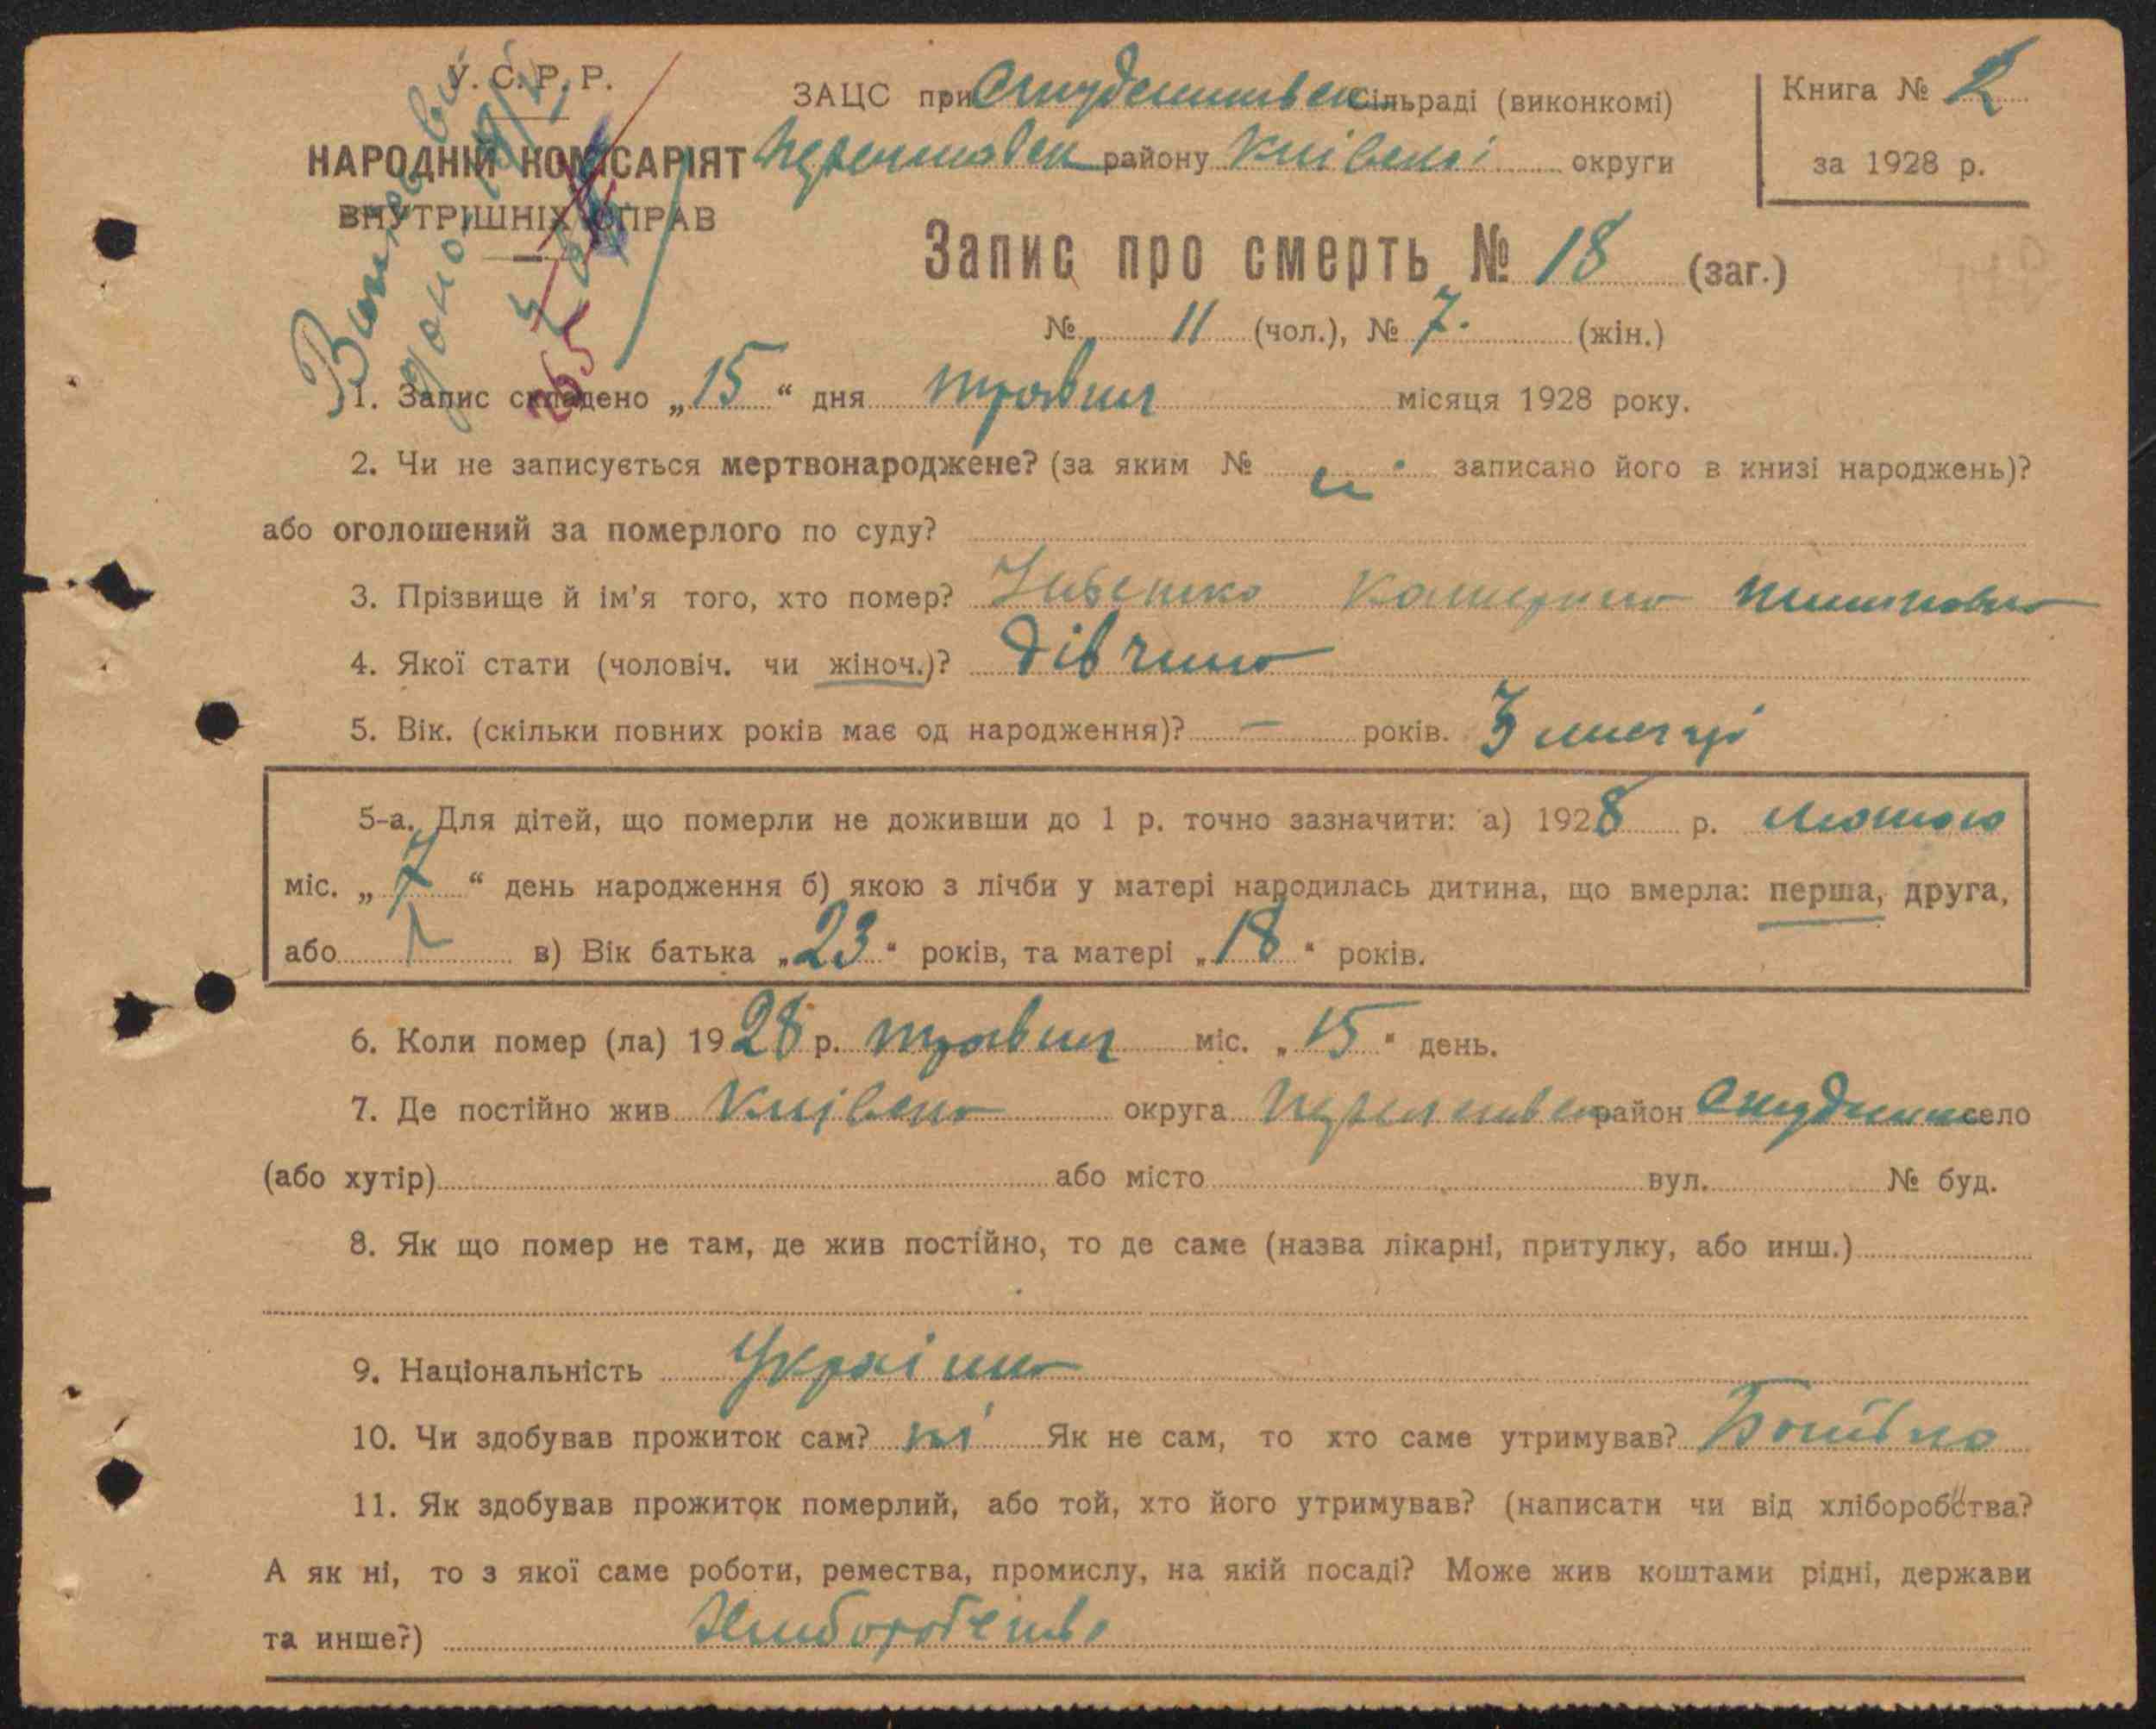 У. С. Р. Р.
НАРОДНІЙ КОМІСАРІЯТ
ВНУТРІШНІХ СПРАВ
ЗАЦС при Сільраді (виконкомі)
району Київскої округи
Книга № 2
за 1928 р.
Запис про смерть № 18 (заг.)
№ 11 (чол.), № 7. (жін.)
1. Запис складено „15“ дня травня місяця 1928 року.
2. Чи не записується мертвонароджене? (за яким № записано його в книзі народжень)?
або оголошений за померлого по суду?
3. Прізвище й ім'я того, хто помер? Катерина
4. Якої стати (чоловіч. чи жіноч.)? Дівчина
5. Вік. (скільки повних років має од народження)? – років. 3 місяці
5-а. Для дітей, що померли не доживши до 1 р. точно зазначити: а) 1928 р. лютого
міс. „7“ день народження б) якою з лічби у матері народилась дитина, що вмерла: перша, друга,
або 1 в) Вік батька „23“ років, та матері „18“ років.
6. Коли помер (ла) 1928 р. травня міс. „15“ день.
7. Де постійно жив Київска округа район село
(або хутір) або місто вул. № буд.
8. Як що помер не там, де жив постійно, то де саме (назва лікарні, притулку, або инш.)
9. Національність Україн
10. Чи здобував прожиток сам? ні Як не сам, то хто саме утримував? Батько
11. Як здобував прожиток померлий, або той, хто його утримував? (написати чи від хліборобства?
А як ні, то з якої саме роботи, ремества, промислу, на якій посаді? Може жив коштами рідні, держави
та инше?) Хліборобство